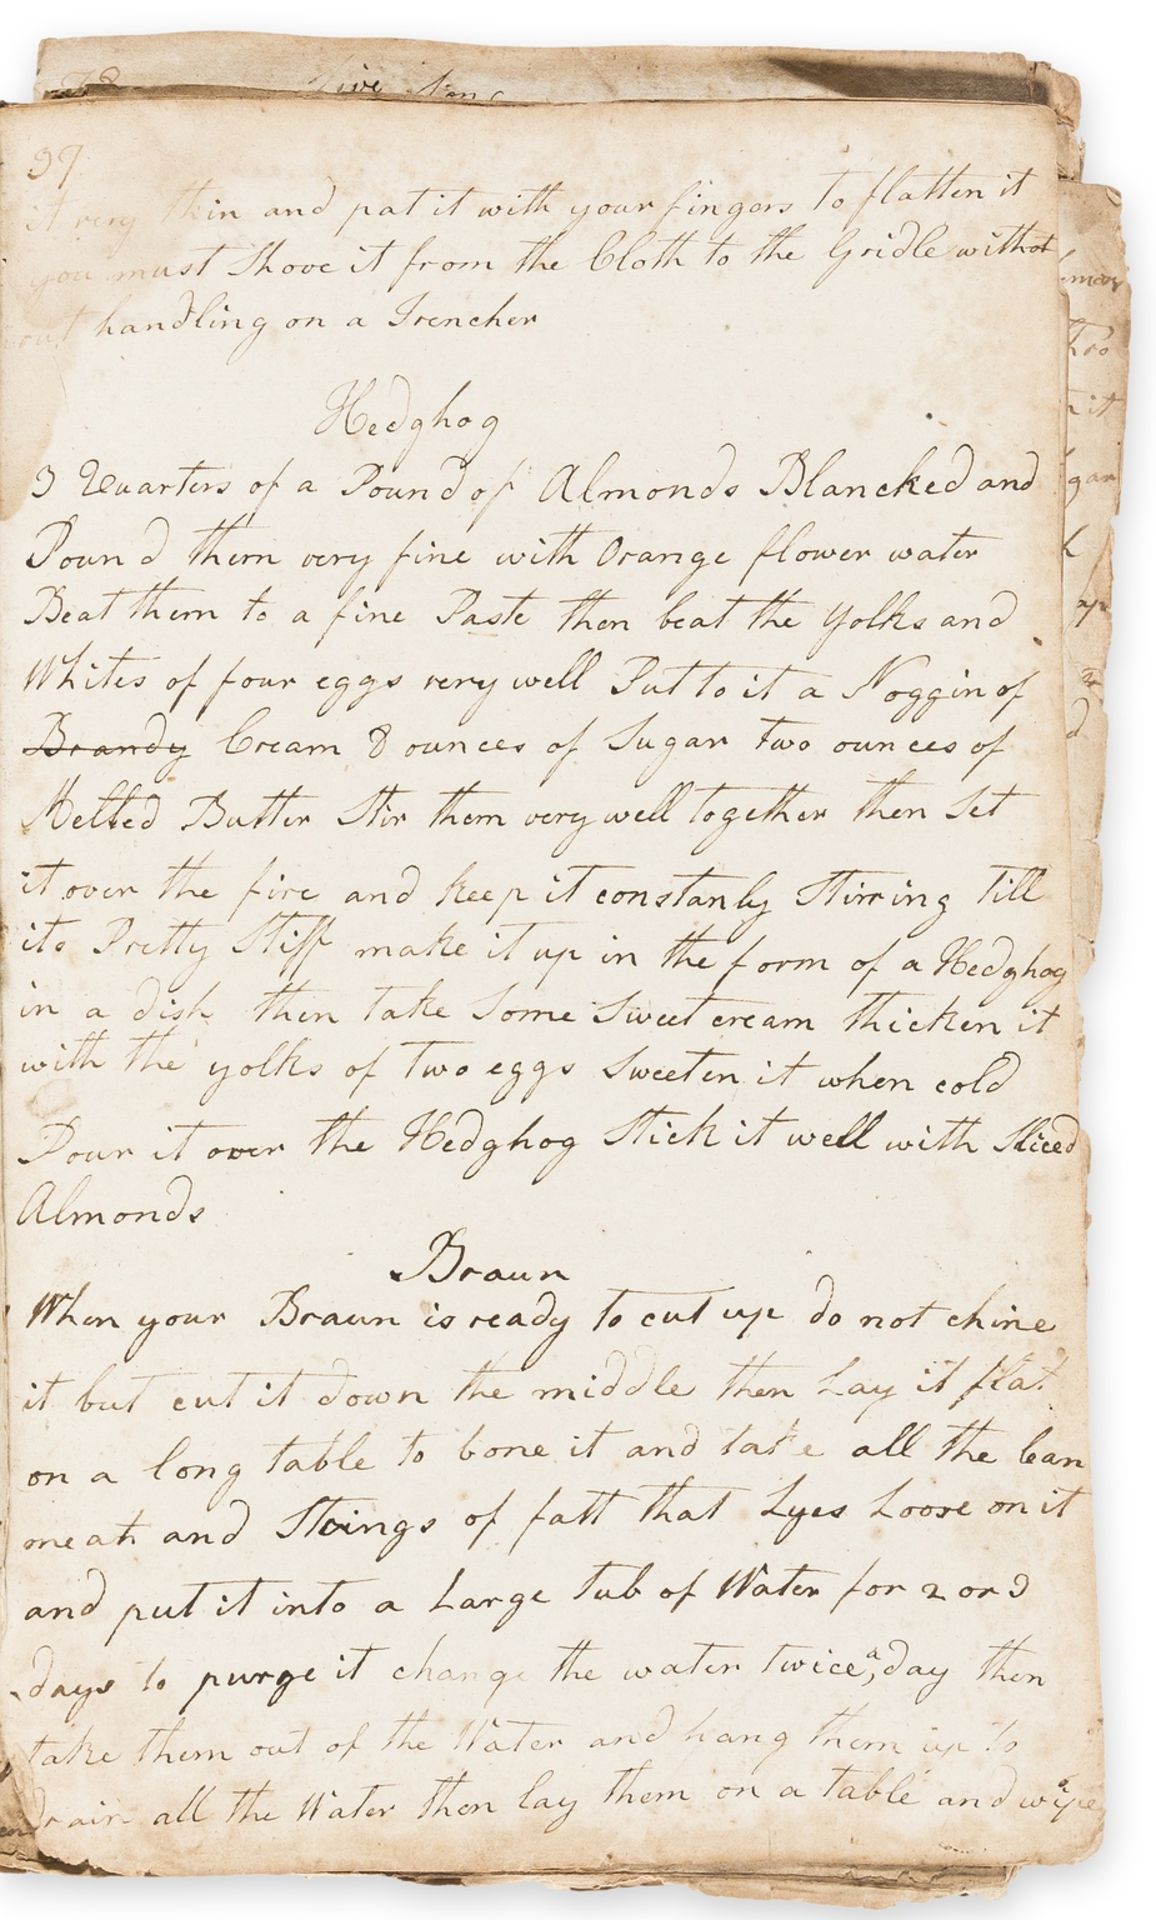 37
it very thin and pat it with your fingors to flatten it
you must Shove it from the Cloth to the Gridle without
out handling on a Trencher
Hedghog
3 Quarters of a Pound of Almonds Blancked and
Pound them very fine with Orange flower water
Beat them to a fine Paste then beat the Yolks and
Whites of four eggs very well Put to it a Noggin of
Brandy Cream 8 ounces of Sugar two ounces of
Melted Butter Stir them very well together then Set
it over the fire and keep it constanly Stirring till
its Pretty Stiff make it up in the form of a Hedghog
in a dish then take Some Sweet cream thicken it
with the yolks of two eggs Sweeten it when cold
Pour it over the Hedghog Stick it well with Sliced
Almonds
Braun
When your Braun is ready to cut up do not chine
it but cut it down the middle then Lay it flat
on a long table to bone it and take all the lean
meat and Strings of fatt that Lyes Loose on it
and put it into a Large tub of Water for 2 or 3
days to purge it change the water twice a day then
take them out of the Water and hang them up to
drain all the Water then lay them on a table and wipe